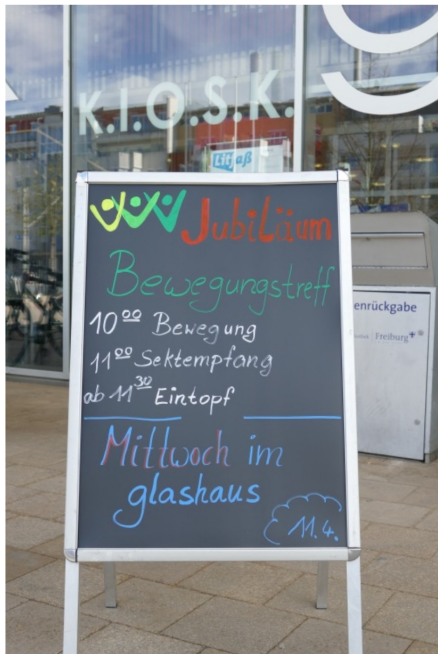 K.I.O.S.K.
Litfaß
Jubiläum
Bewegungstreff
10⁰⁰ Bewegung
11⁰⁰ Sektempfang
ab 11³⁰ Eintopf
Mittwoch im
glashaus
11.4.
enrückgabe
Freiburg